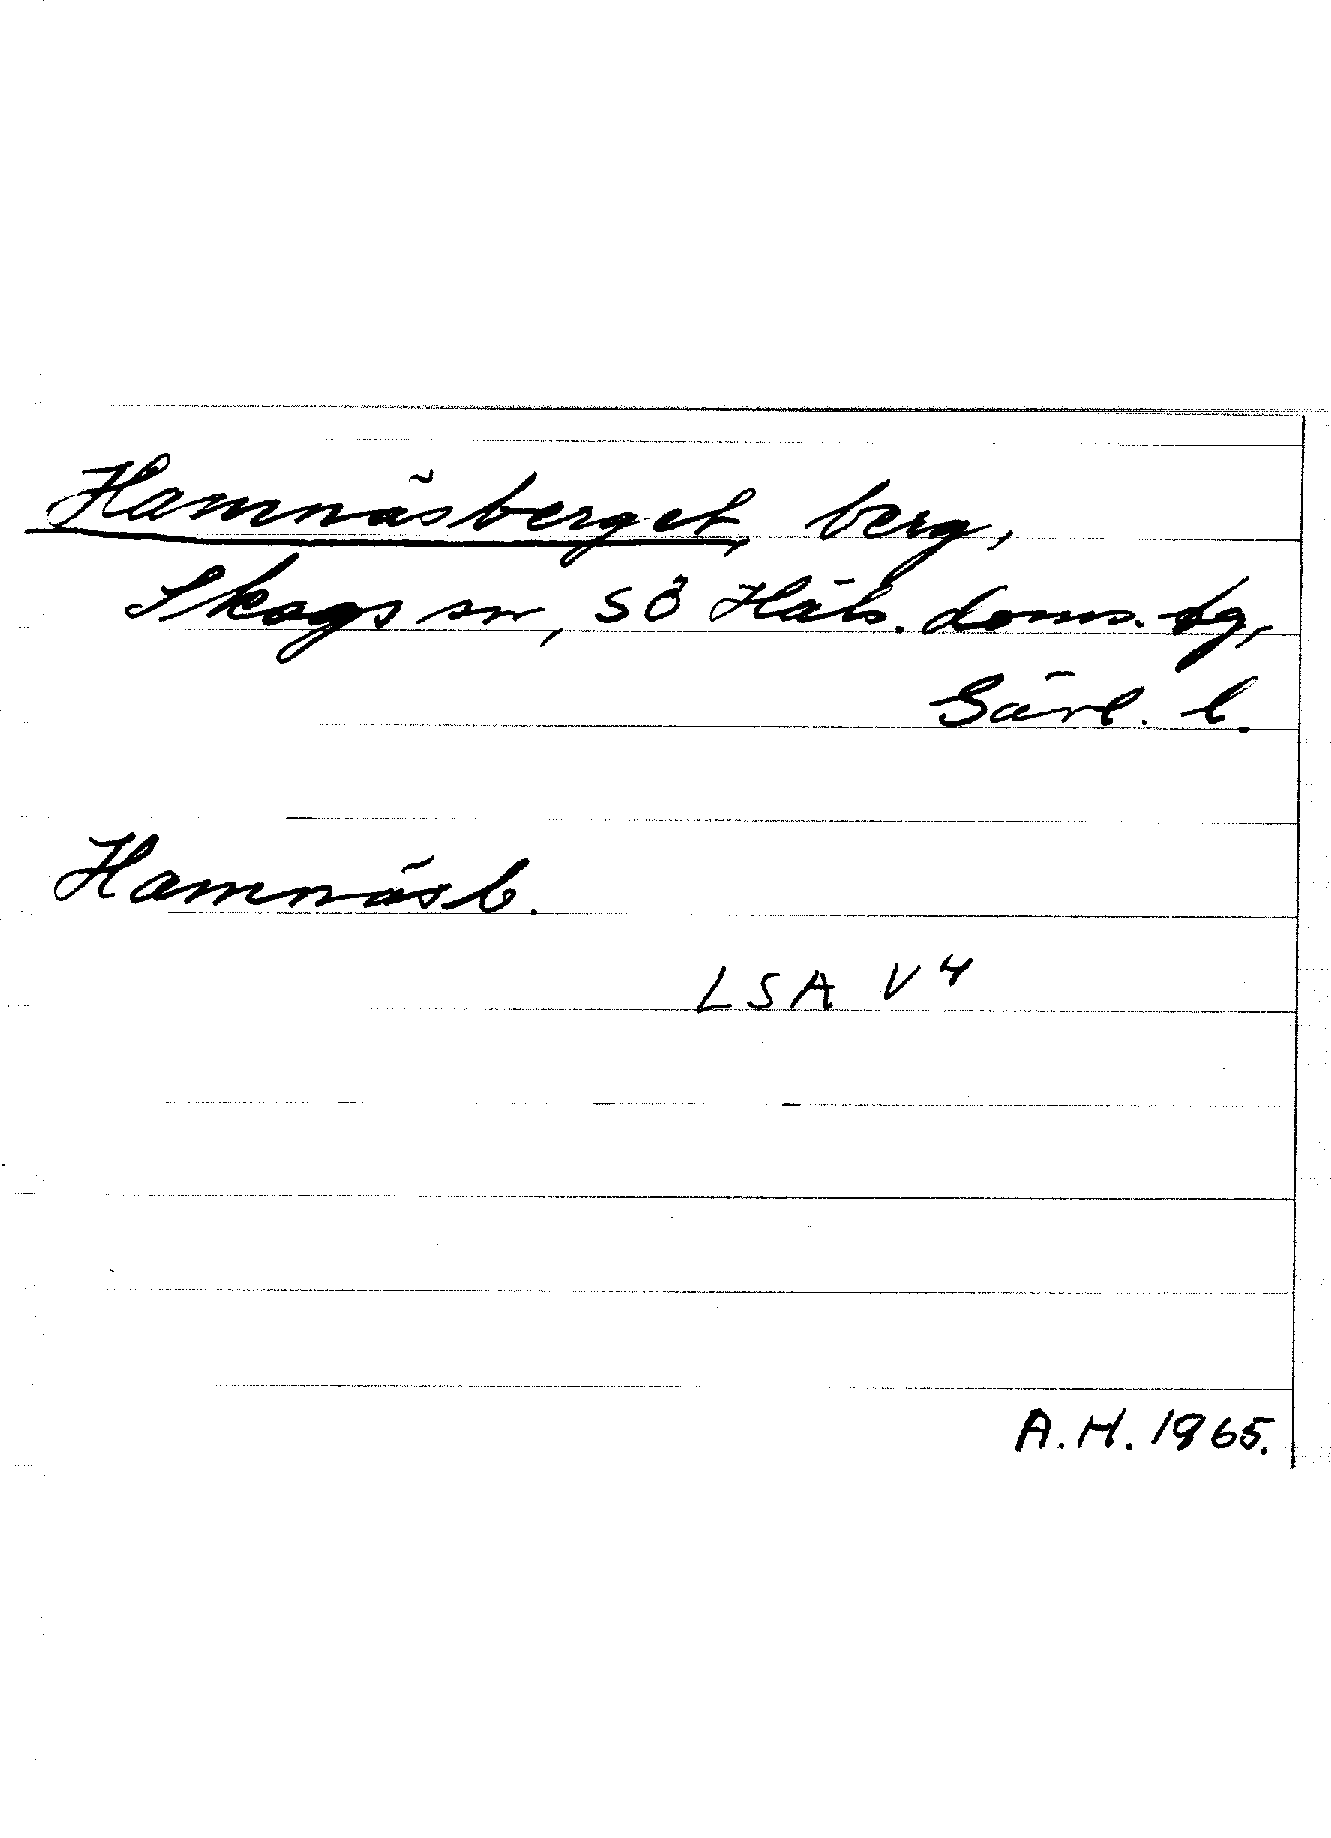 Hamnäsberget, berg,
Skogs sn, SÖ Häls. doms. tg,
Gävl. l.
Hamnäsb.
LSA V4
A.H. 1965.